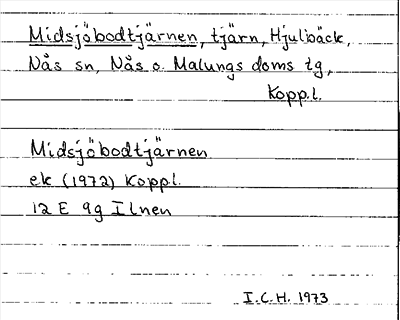 Midsjöbodtjärnen, tjärn, Hjulbäck,
Nås sn, Nås o. Malungs doms tg,
Koppl.
Midsjöbodtjärnen
ek (1972) Koppl.
12 E 9g Ilnen
I.C.H. 1973